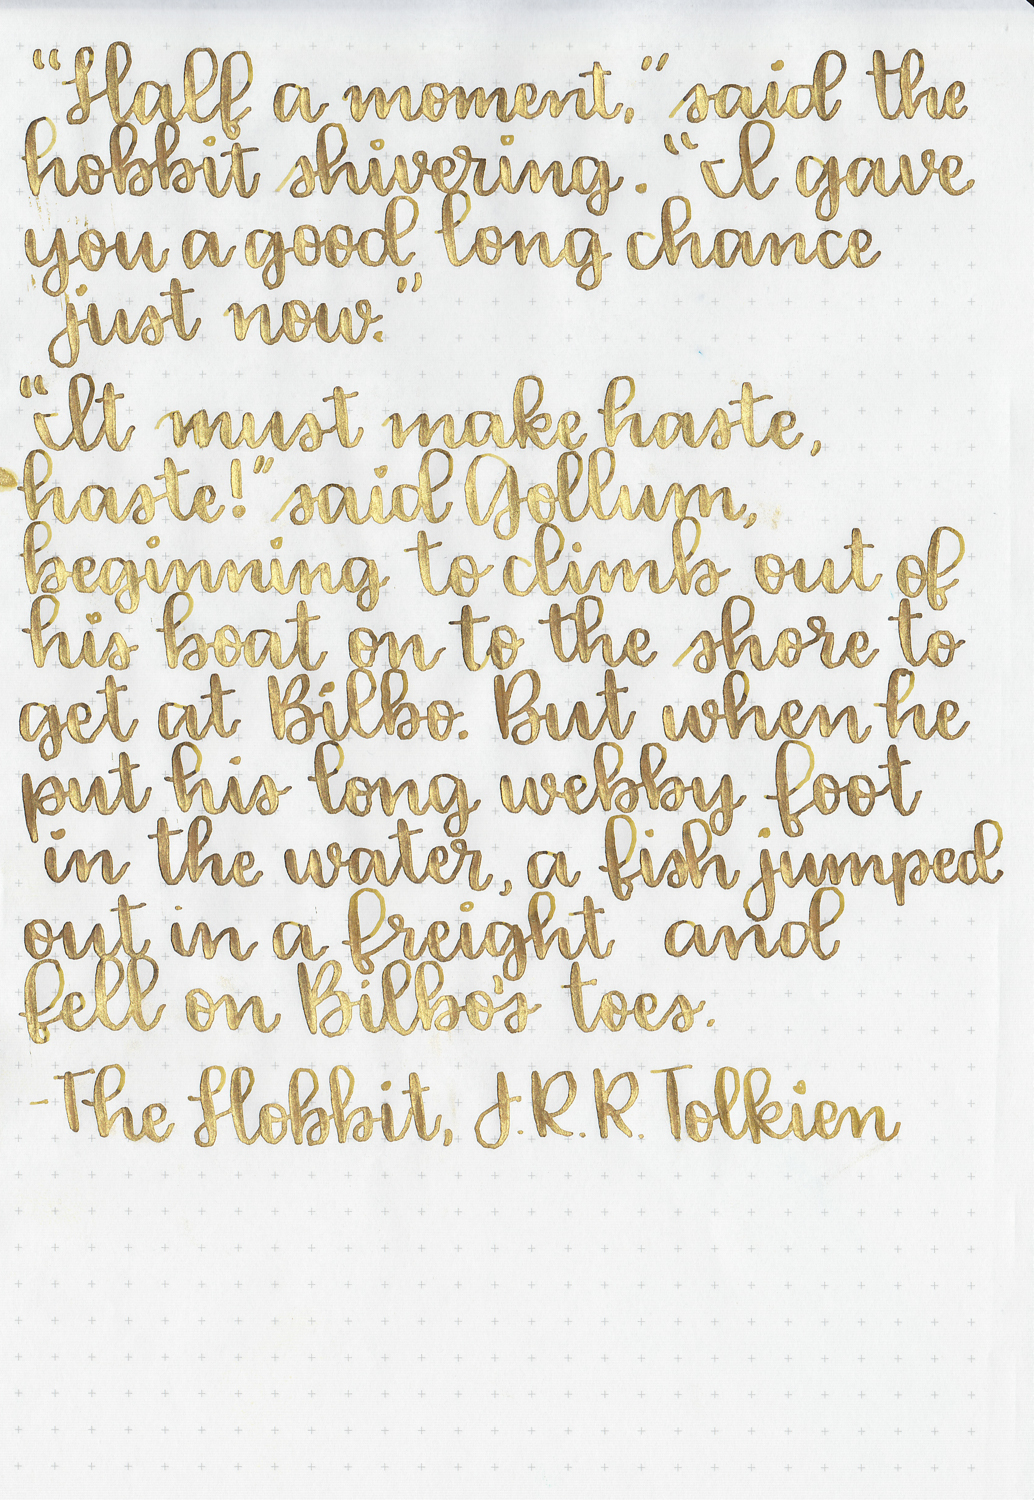 “Half a moment,” said the
hobbit shivering. “I gave
you a good long chance
just now.”
“It must make haste,
haste!” said Gollum,
beginning to climb out of
his boat on to the shore to
get at Bilbo. But when he
put his long webby foot
in the water, a fish jumped
out in a freight and
fell on Bilbo's toes.
-The Hobbit, J.R.R. Tolkien